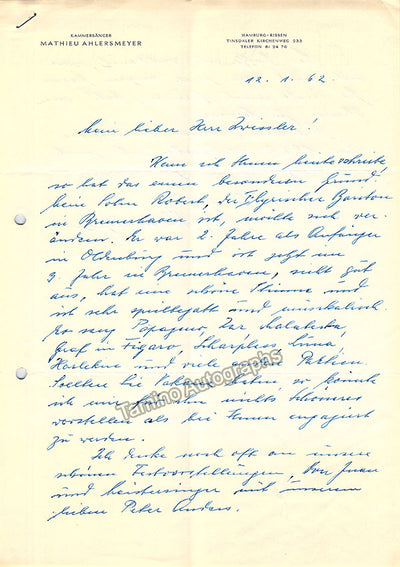 KAMMERSÄNGER
MATHIEU AHLERSMEYER
HAMBURG-RISSEN
TINSDALER KIRCHENWEG 233
TELEFON 81 24 76
12. 1. 62
Mein lieber Herr Zwissler!
Wenn ich Ihnen heute schreibe
so hat das einen besonderen Grund.
Mein Sohn Robert, der Lyrischer Bariton
in Bremerhaven ist, möchte sich ver-
ändern. Er war 2. Jahre als Anfänger
in Oldenburg und ist jetzt im
3. Jahr in Bremerhaven, sieht gut
aus, hat eine schöne Stimme und
ist sehr spielbegabt und musikalisch.
Er sang Papageno, Zar, Malatesta
Graf in Figaro, Sharpless,
und viele andere Partien.
Sollten Sie Vakanz haben, so könnte
ich mir nichts Schöneres
vorstellen als bei Ihnen engagiert
zu werden.
Ich denke noch oft an unsere
schönen Festvorstellungen, Don Juan
und Meistersinger mit unserem
lieben Peter Anders.
Tamino Autographs